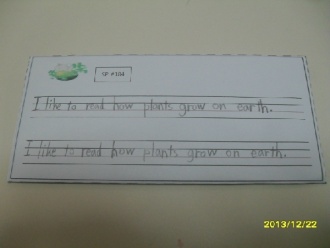 I like to read how plants grow on earth.
I like to read how plants grow on earth.
2013/12/22